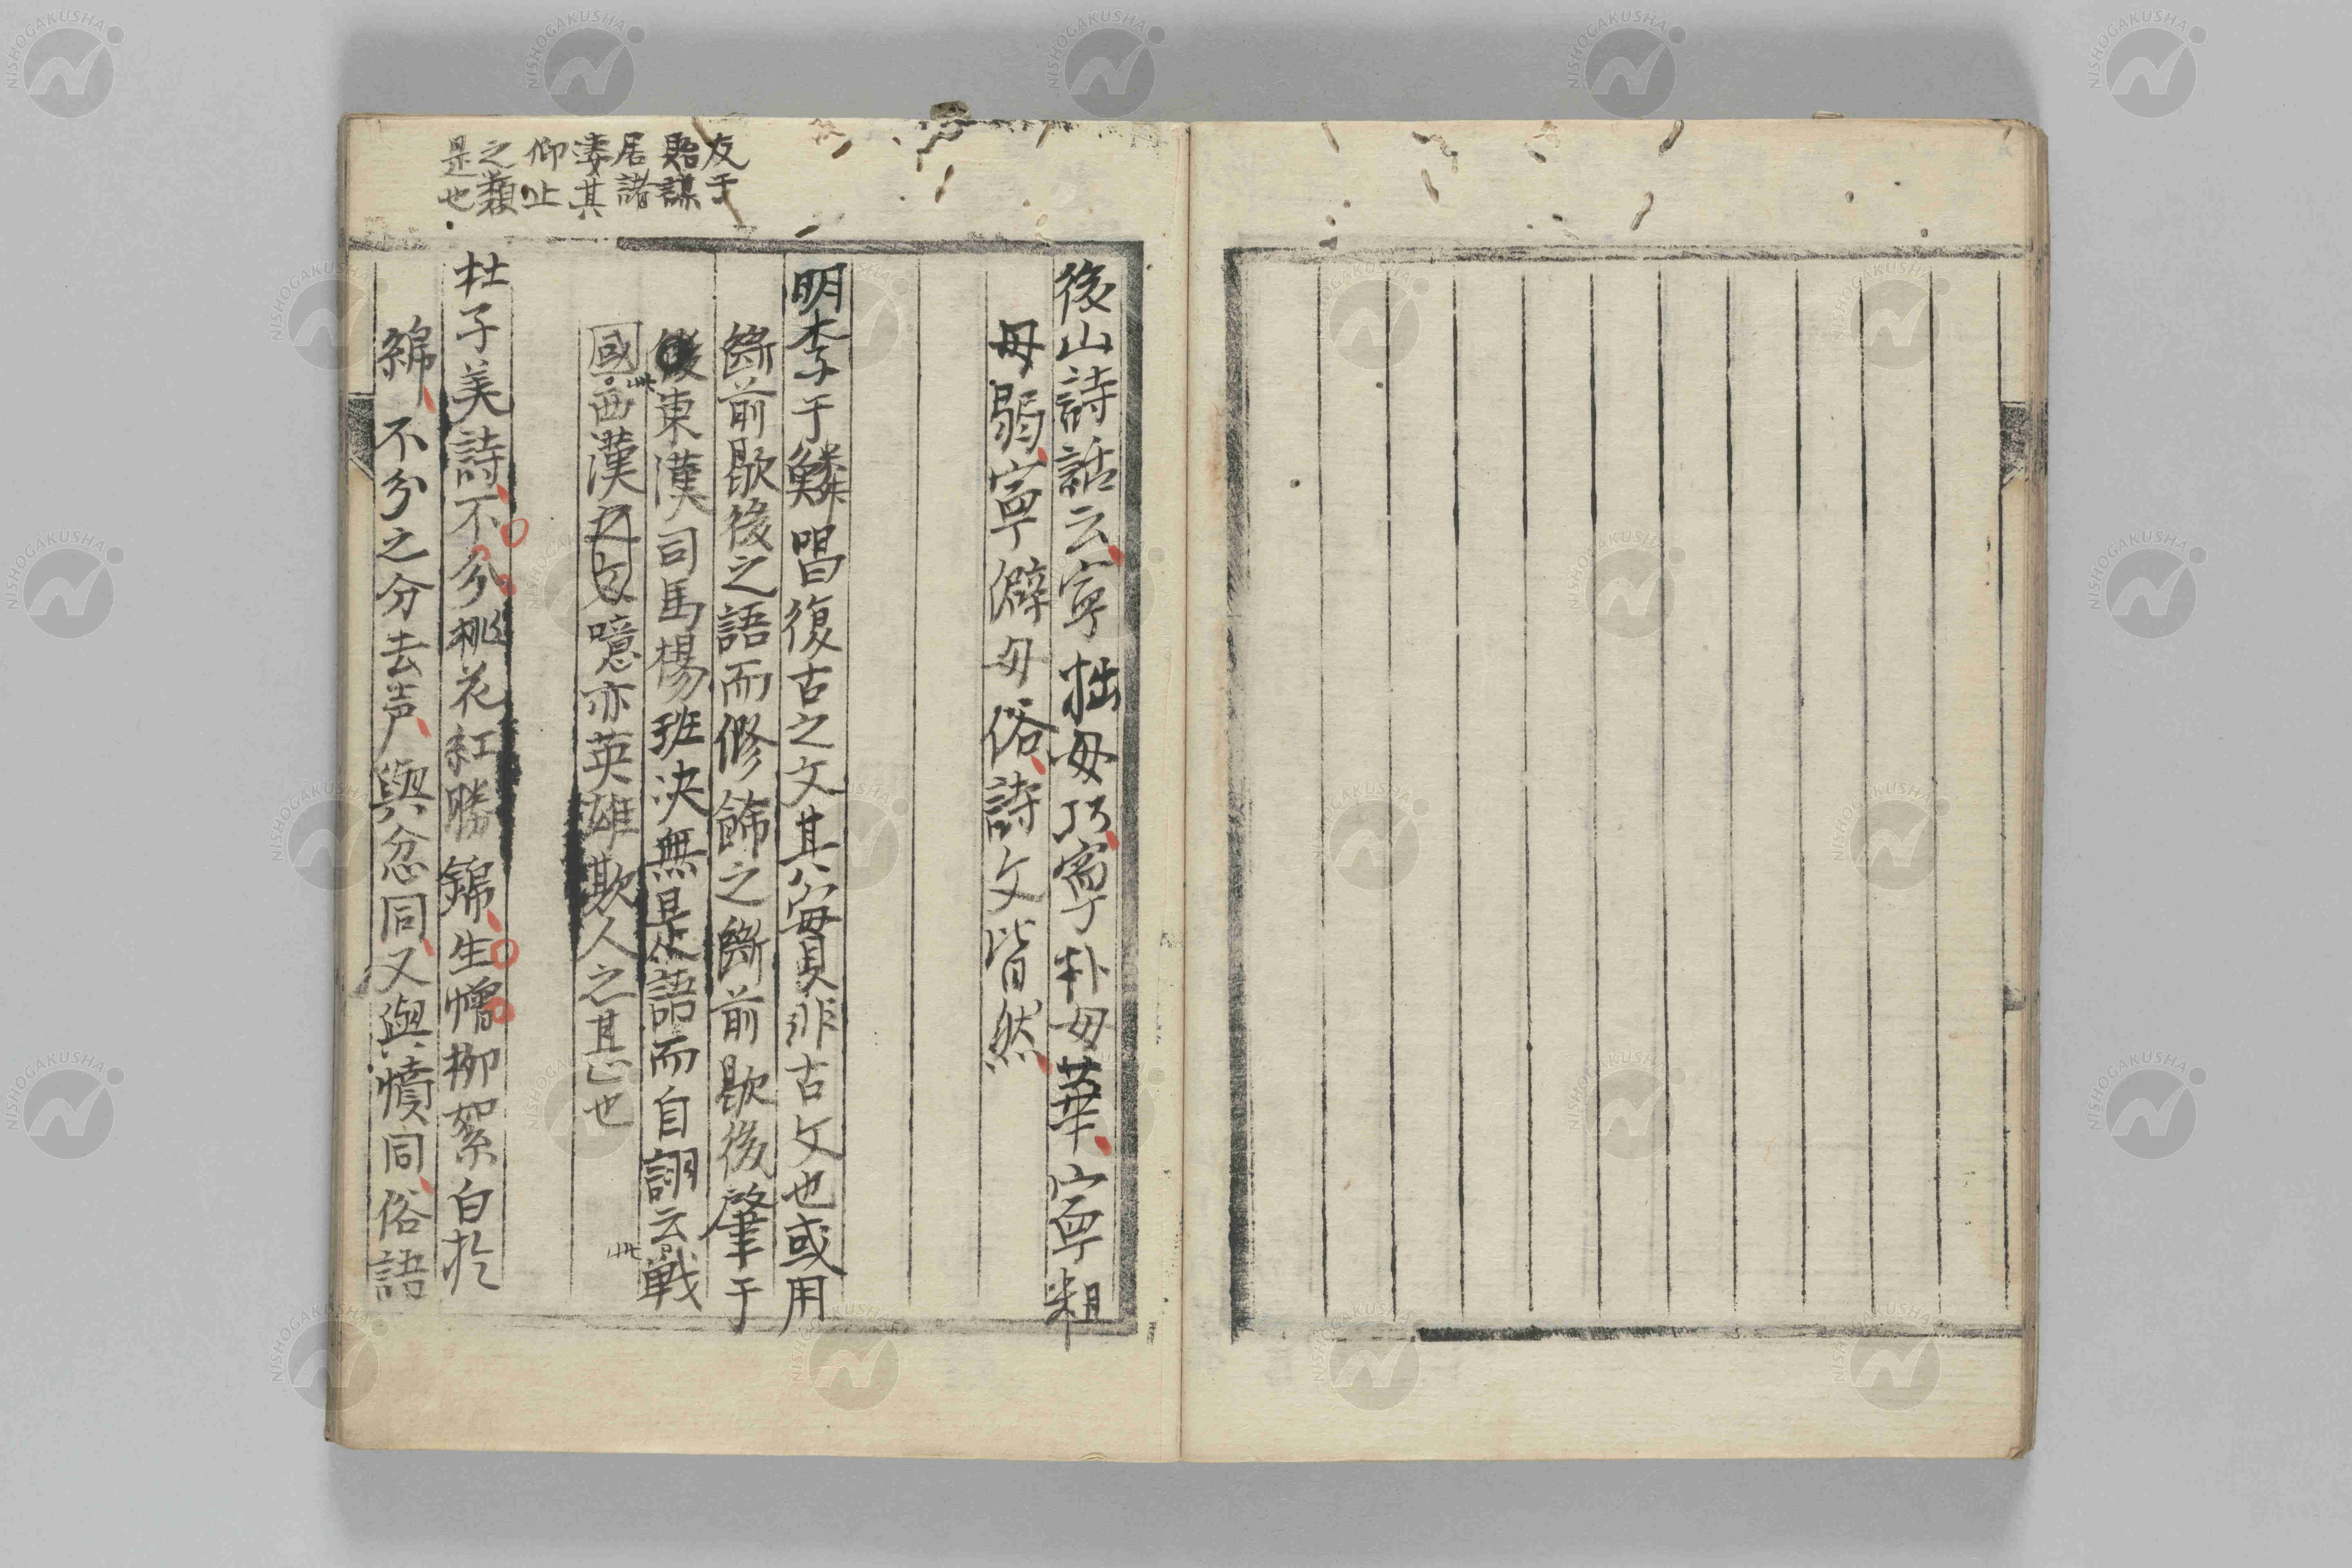 後山詩話云寧拙毋巧寧朴毋華寧粗
毋弱寧僻毋俗詩文皆然
明李于鱗唱復古之文其實非古文也或用
斷前歇後之語而修飾之斷前歇後肇于
後東漢司馬楊班決無是語而自詡云戰
國西漢之文噫亦英雄欺人之甚也
杜子美詩不分桃花紅勝錦生憎柳絮白於
綿不分之分去声與忿同又與憤同俗語
友于
貽謀
居諸
淒其
仰止
之類
是也
NISHOGAKUSHA